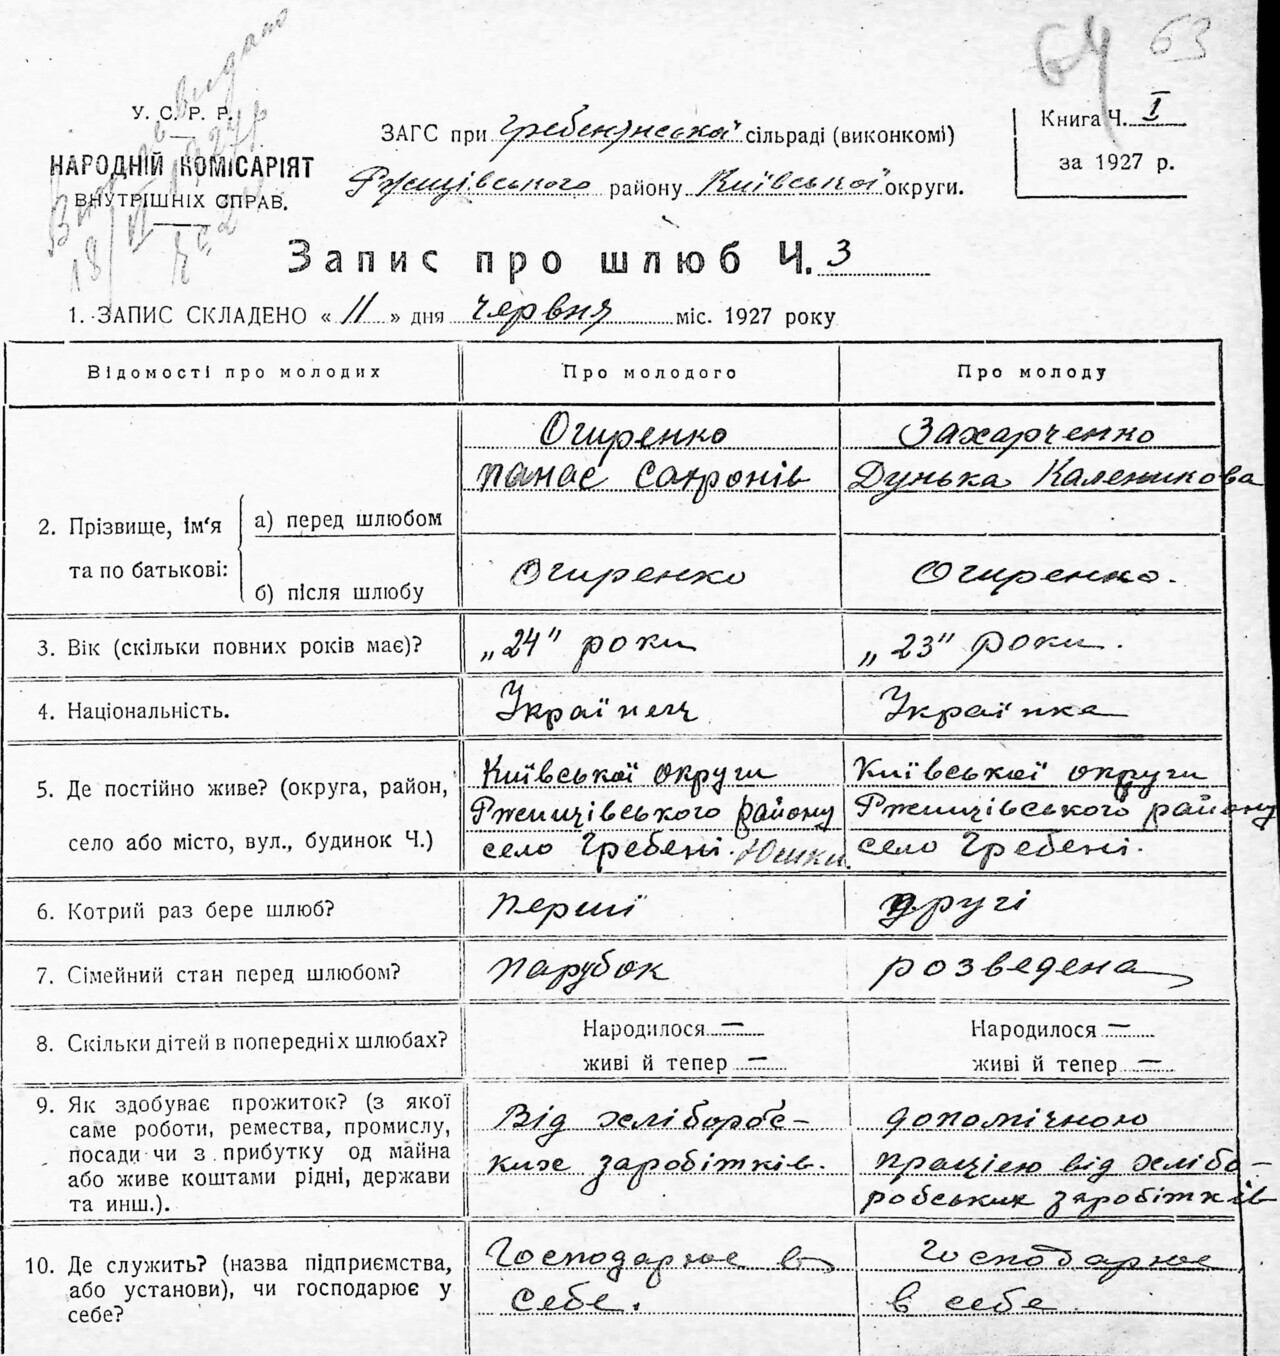 64 63
У. С. Р. Р.
НАРОДНІЙ КОМІСАРІЯТ
ВНУТРІШНІХ СПРАВ.
видано
ЗАГС при Гребенінської сільраді (виконкомі)
Ржищівського району Київської округи.
Книга Ч. I
за 1927 р.
Запис про шлюб Ч. 3
1. ЗАПИС СКЛАДЕНО « 11 » дня червня міс. 1927 року
Відомості про молодих
Про молодого
Про молоду
2. Прізвище, ім'я та по батькові:
а) перед шлюбом
Огиренко
Панас Сафронів
Захарченко
Дунька Каленикова
б) після шлюбу
Огиренко
Огиренко.
3. Вік (скільки повних років має)?
„24" роки
„23" роки.
4. Національність.
Українец
Українка
5. Де постійно живе? (округа, район,
село або місто, вул., будинок Ч.)
Київської округи
Ржищівського району
село Гребені. Юшки
Київської округи
Ржищівського району
село Гребені.
6. Котрий раз бере шлюб?
перший
другі
7. Сімейний стан перед шлюбом?
парубок
розведена
8. Скільки дітей в попередніх шлюбах?
Народилося —
живі й тепер —
Народилося —
живі й тепер —
9. Як здобуває прожиток? (з якої
саме роботи, ремества, промислу,
посади чи з прибутку од майна
або живе коштами рідні, держави
та инш.).
Від хлібороб-
ких заробітків.
допомічною
працією від хлібо-
робських заробітків
10. Де служить? (назва підприємства,
або установи), чи господарює у
себе?
Господарює в
себе.
Господарює
в себе